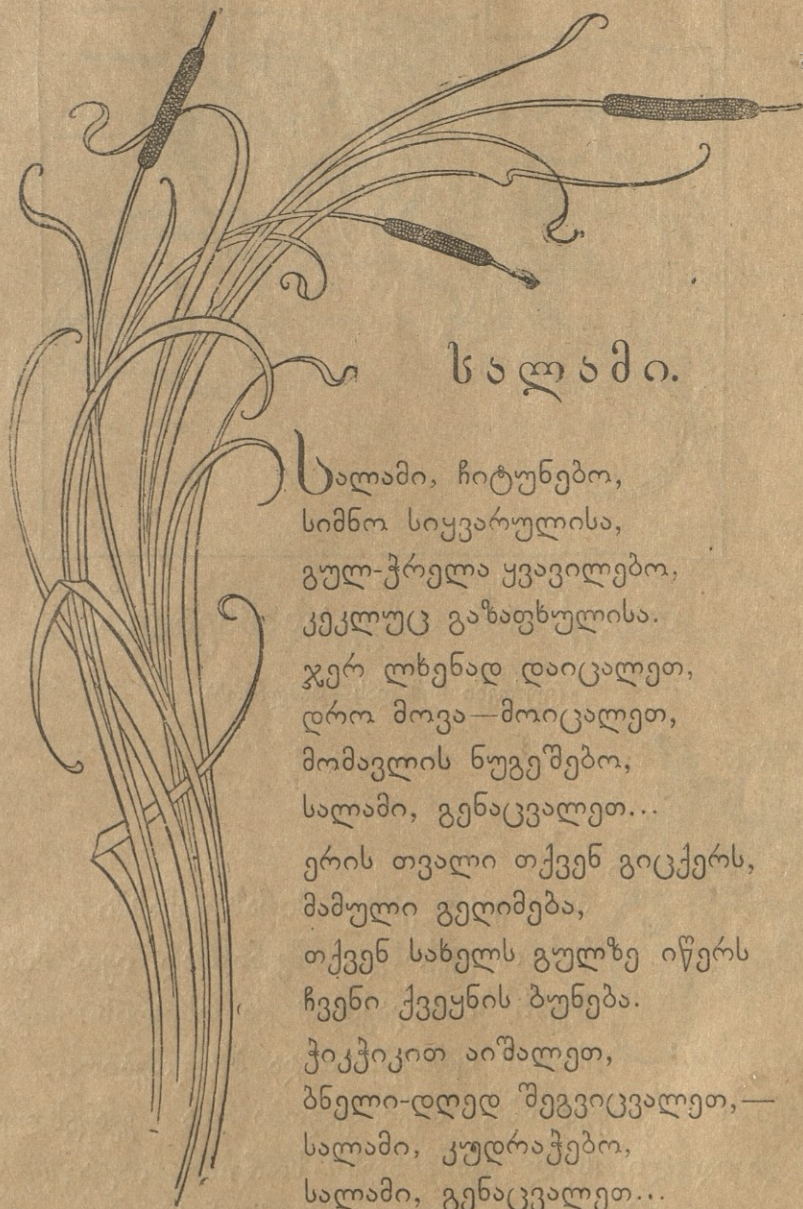 სალამი.
სალამი, ჩიტუნებო,
სიმნო სიყვარულისა,
გულ-ჭრელა ყვავილებო,
კეკლუც გაზაფხულისა.
ჯერ ლხენად დაიცალეთ,
დრო მოვა—მოიცალეთ,
მომავლის ნუგეშებო,
სალამი, გენაცვალეთ...
ერის თვალი თქვენ გიცქერს,
მამული გეღიმება,
თქვენ სახელს გულზე იწერს
ჩვენი ქვეყნის ბუნება.
ჭიკჭიკით აიშალეთ,
ბნელი-დღედ შეგვიცვალეთ,—
სალამი, კუდრაჭებო,
სალამი, გენაცვალეთ...